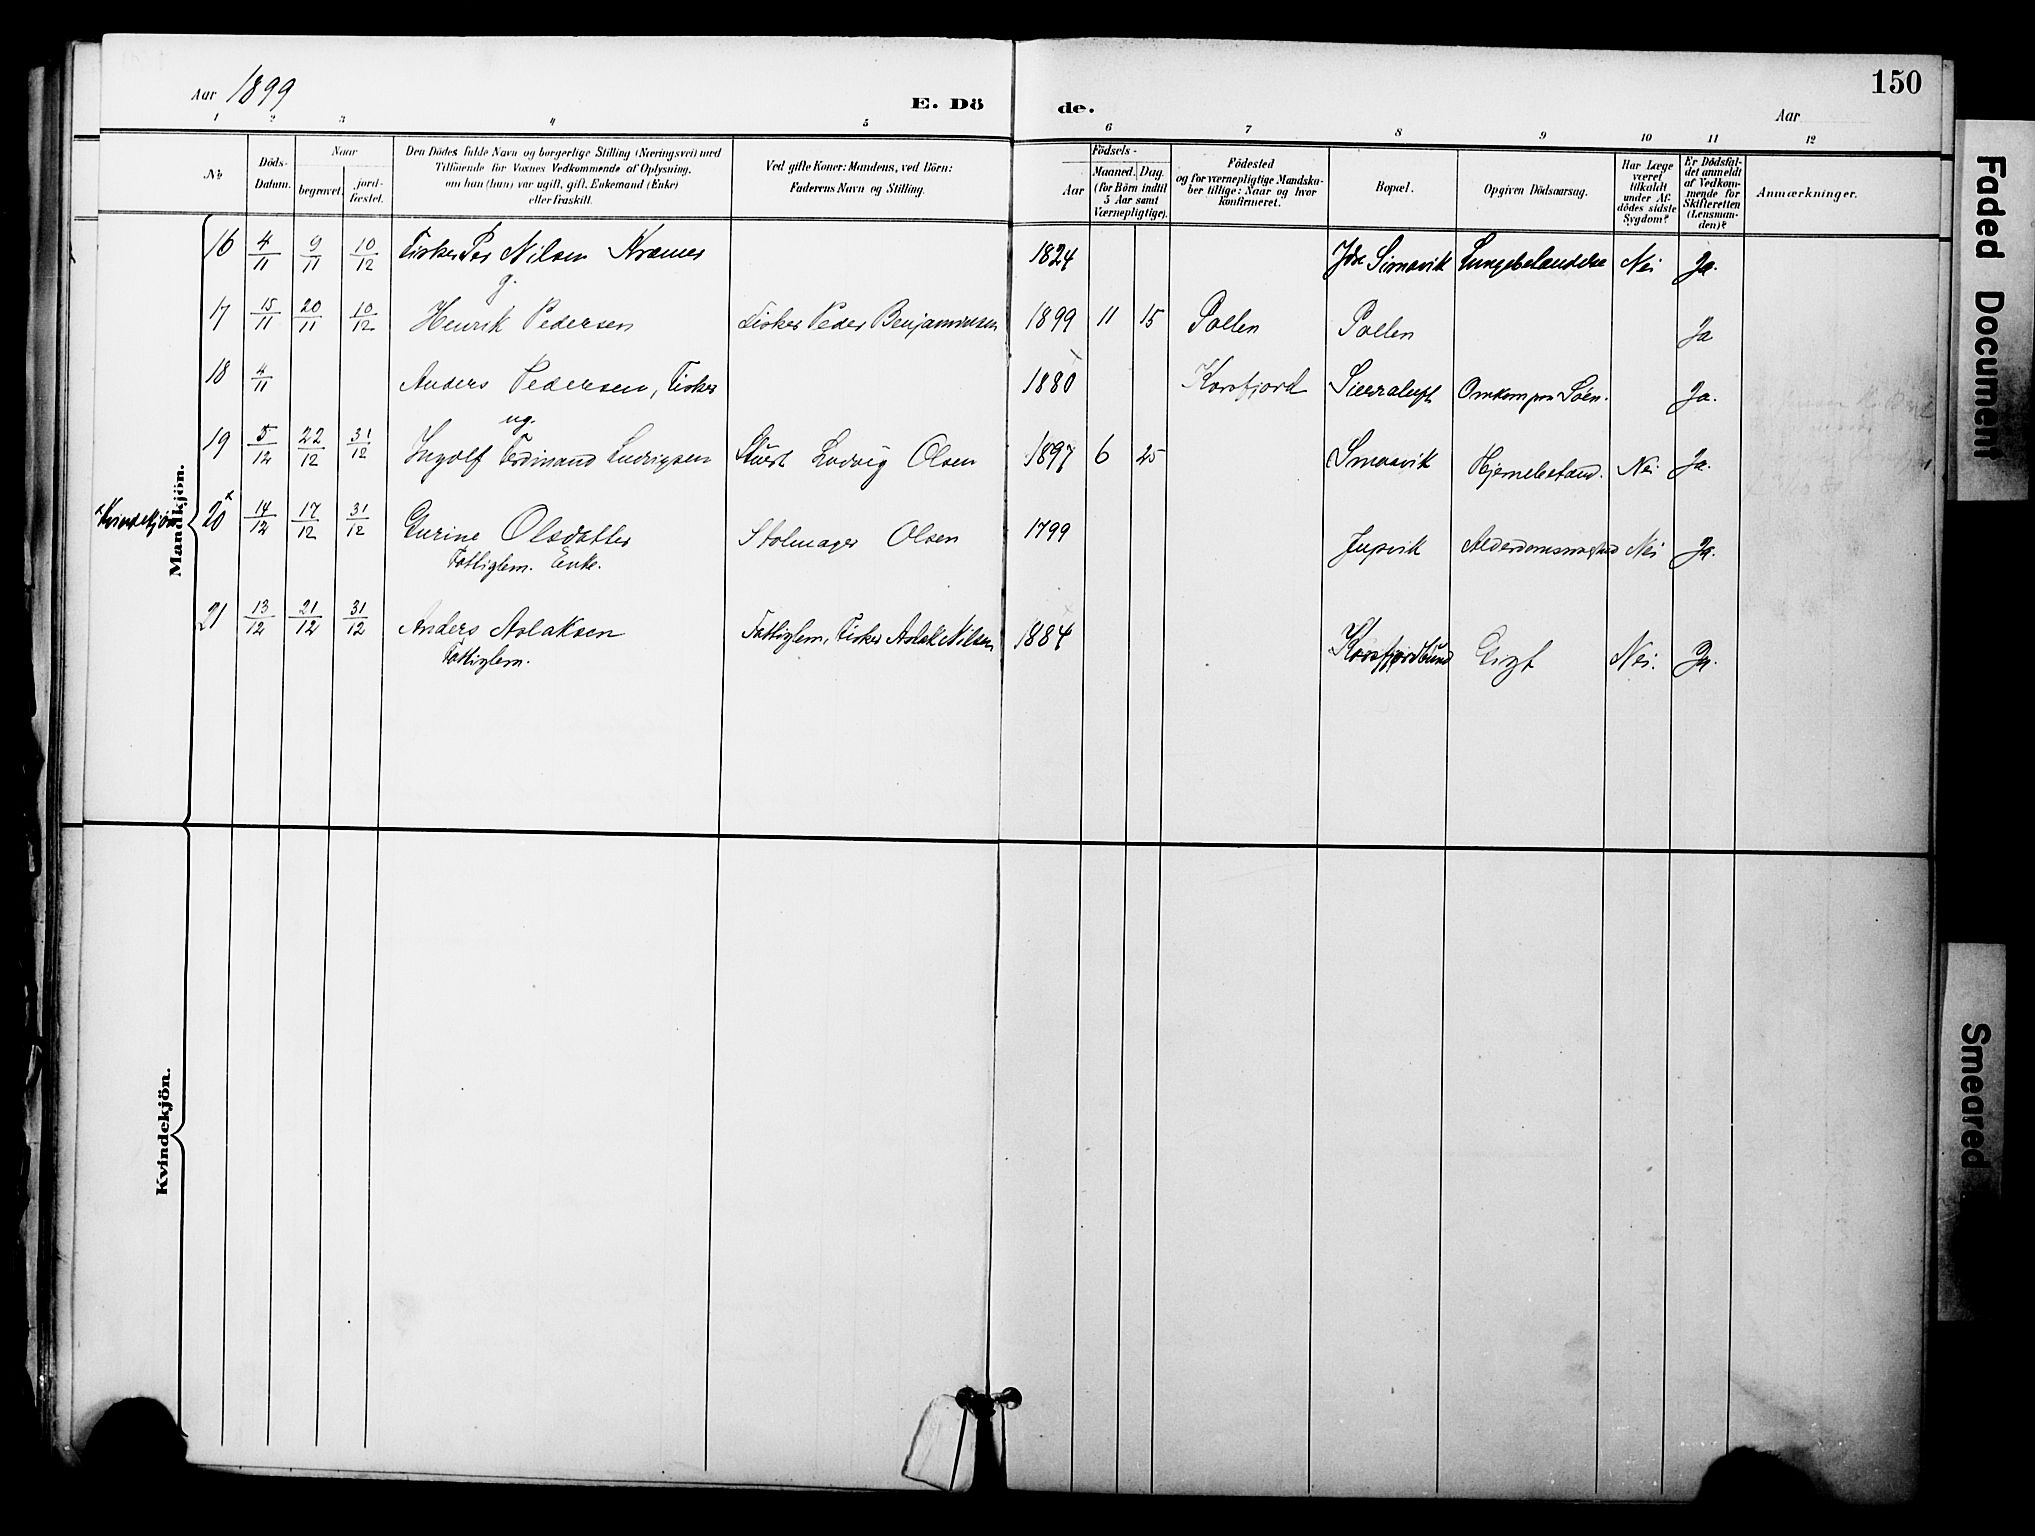 Aar 1899
E. Dö
de.
Aar
150
1 2 3 4 5 6 7 8 9 10 11 12
No
Döds-
Datum.
Naar
begravet.
jord-
fæstet.
Den Dödes fulde Navn og borgerlige Stilling (Næringsvei) med
Tilföiende for Voxnes Vedkommende af Oplysning,
om han (hun) var ugift, gift, Enkemand (Enke)
eller fraskilt.
Ved gifte Koner: Mandens, ved Börn:
Faderens Navn og Stilling.
Födsels-
Aar
Maaned. Dag.
(for Börn indtil
5 Aar samt
Værnepligtige).
Födested
og for værnepligtige Mandska-
ber tillige: Naar og hvor
konfirmeret.
Bopæl.
Opgiven Dödsaarsag.
Har Læge
været
tilkaldt
under Af-
dödes sidste
Sygdom?
Er Dödsfal-
det anmeldt
af Vedkom-
mende for
Skifteretten
(Lensman-
den)?
Anmærkninger.
16 4/11 9/11 10/12 Fisker Per Nilsen Kræmer 1824 Jdre Simavik Lungebetændelse Nei Ja.
g.
17 15/11 20/11 10/12 Henrik Pedersen Fisker Peder Benjaminsen 1899 11 15 Pollen Pollen Ja
18 4/11 Anders Pedersen, Fisker 1880 Korsfjord Omkom paa Söen. Ja.
ug.
19 5/12 22/12 31/12 Ingolf Ferdinand Ludvigsen Stuert Ludvig Olsen 1897 6 25 Smaavik Hjernebetænd. Nei Ja.
x Kvindekjön
20 x 14/12 17/12 31/12 Gurine Olsdatter Stolmager Olsen 1799 Jupvik Nei Ja.
Fattiglem. Enke.
21 13/12 21/12 31/12 Anders Aslaksen Fattiglem, Fisker Aslak Nilsen 1884 Korsfjordbund Gigt Nei. Ja.
Fattiglem.
Mandkjön.
Kvindekjön.
Faded Document
Smeared